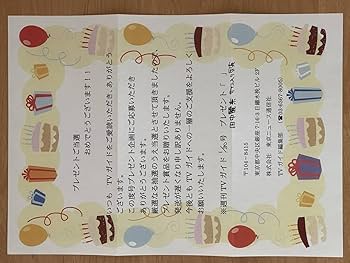 プレゼント当選
おめでとうございます!!
いつも、TVガイドをご愛読いただき、ありがとう
ございます。
この度号プレゼント企画にご応募いただき
ありがとうございます。
厳選なる抽選のうえ当選とさせて頂きましたので、
プレゼント賞品をお贈りいたします。
発送が遅くなり申し訳ありません。
今後ともTVガイドへの一層のご支援をよろしく
お願いいたします。
※週刊TVガイド 号 プレゼント「 」
〒104-8415
東京都中央区銀座7-16-3 日鐵木挽ビル2F
株式会社 東京ニュース通信社
TVガイド編集部